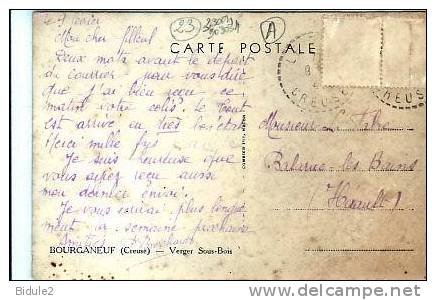 le 9 février
Mon cher filleul
23
A
CARTE POSTALE
Deux mots avant le départ
du courrier pour vous dire
que j'ai bien reçu ce
matin votre colis. Le tout
est arrivé en très bon état
Merci mille fois
Je suis heureuse que
vous ayez reçu aussi
mon dernier envoi.
Je vous écrirai plus longue
ment la semaine prochaine
CREUSE
CREUSE
Monsieur
Balaruc-les-Bains
(Hérault)
BOURGANEUF (Creuse) — Verger Sous-Bois
Bidule2
delcampe.net